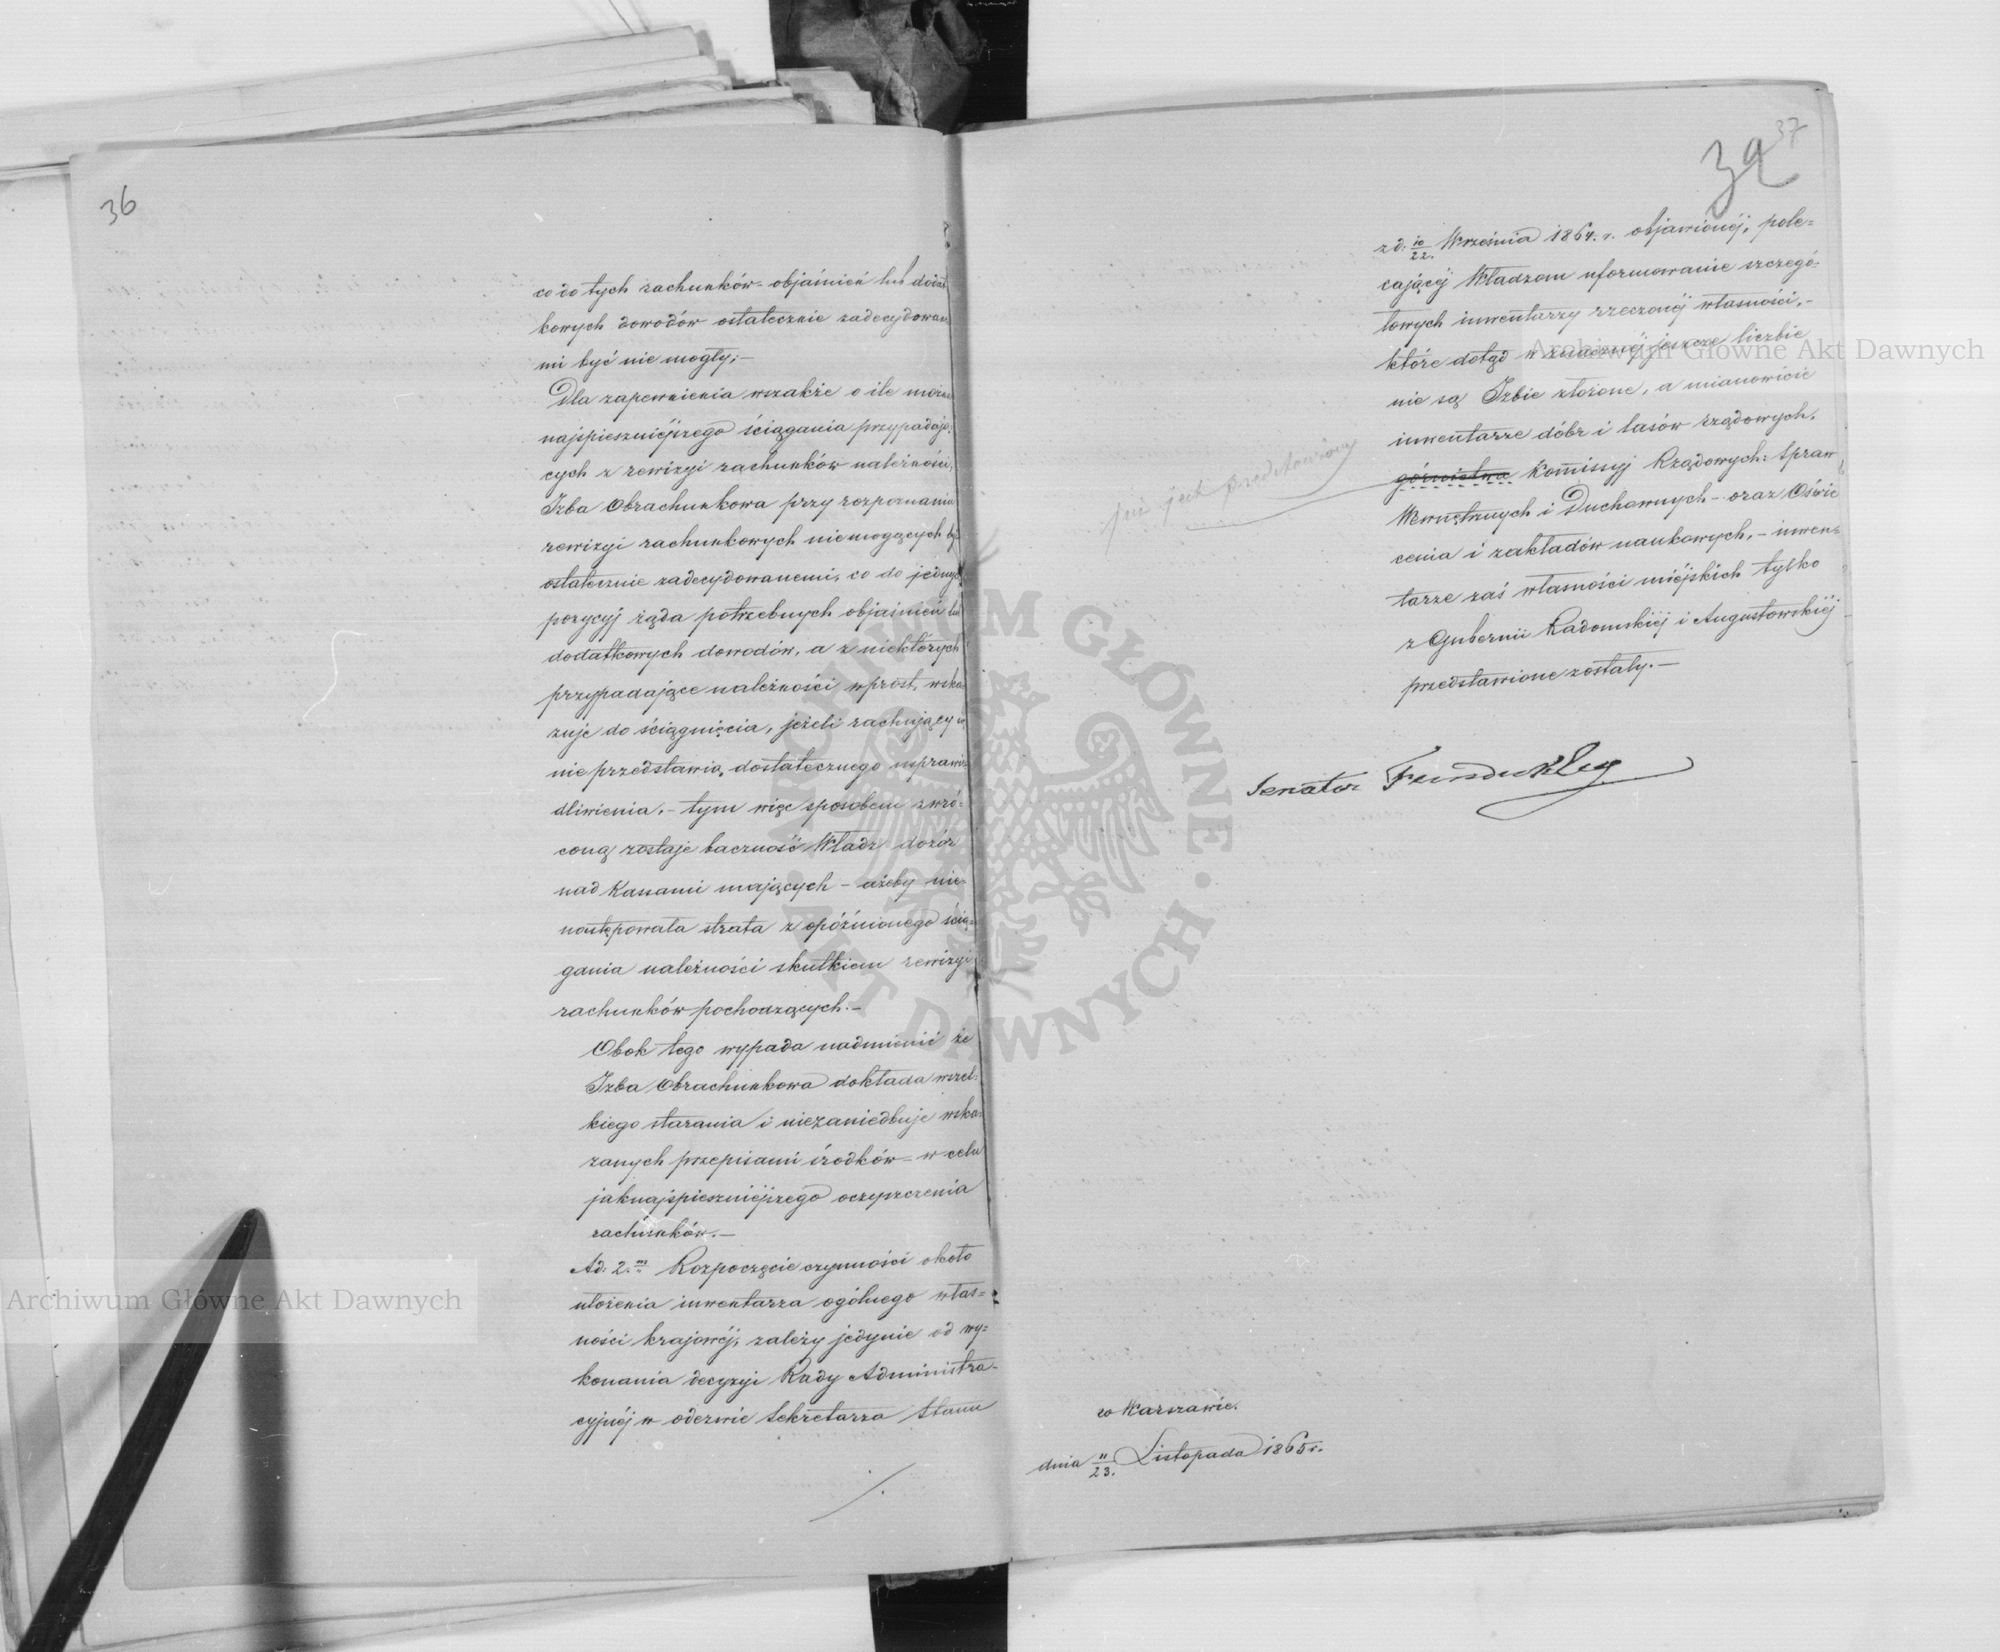 36
co do tych rachunków objaśnień lub dodat
kowych dowodów ostatecznie zadecydowane
mi być nie mogły;—
Dla zapewnienia wszakże o ile można
najspieszniejszego ściągania przypadają,
cych z rewizyi rachunków należności,
Izba Obrachunkowa przy rozpoznaniu
rewizyi rachunkowych niemogących być
ostatecznie zadecydowanemi, co do jednych
pozycyj żąda potrzebnych objaśnień lub
dodatkowych dowodów, a z niektórych
przypadające należności wprost, wska
zuje do ściągnięcia, jeżeli rachujący
nie przedstawią dostatecznego usprawie
dliwienia.– tym więc sposobem zwró=
coną zostaje baczność Władz dozór
nad Kassami mających – ażeby nie=
następowała strata z opóźnionego ścią=
gania należności skutkiem rewizyi
rachunków pochodzących.–
Obok tego wypada nadmienić że
Izba Obrachunkowa dokłada wszel=
kiego starania i niezaniedbuje wska=
zanych przepisami środków – w celu
jaknajspieszniejszego oczyszczenia
rachunków.—
Ad. 2.m Rozpoczęcie czynności około
ułożenia inwentarza ogólnego włas=
ności krajowej, zależy jedynie od wy=
konania decyzyi Rady Administra-
cyjnéj w odezwie Sekretarza Stanu
37
z d. 10/22. Września 1864. r. objawionéj, pole=
cającéj Władzom uformowanie szczegó-
łowych inwentarzy rzeczonéj własności,–
które dotąd w znacznéj jeszcze liczbie
nie są Izbie złożone, a mianowicie
inwentarze dóbr i lasów rządowych,
górnictwa Kommissyj Rządowych: Spraw
Wewnętrznych i Duchownych – oraz Oświe
cenia i zakładów naukowych,– inwen=
tarze zaś własności miéjskich tylko
z Gubernii Radomskiéj i Augustowskiéj
przedstawione zostały.—
już jest przedstawiony
Senator Funduklej
w Warszawie.
dnia 11/23. Listopada 1865 r.
Archiwum Główne Akt Dawnych
Archiwum Główne Akt Dawnych
ARCHIWUM GŁÓWNE · AKT DAWNYCH ·